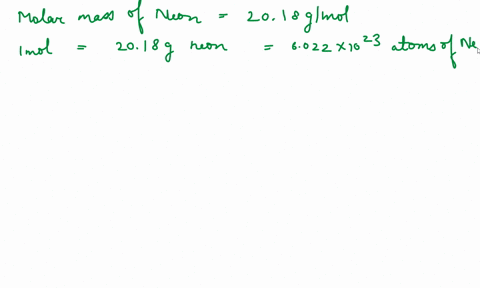 Molar mass of Neon = 20.18 g/mol
1mol = 20.18 g neon = 6.022 × 10²³ atoms of Ne